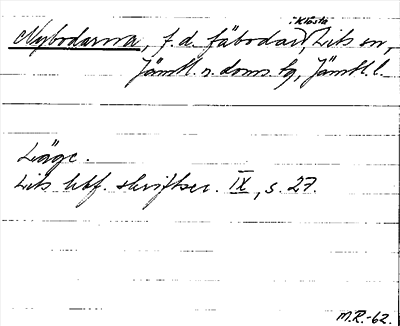 i Klösta
Nybodarna, f. d. fäbodar, Lits sn,
Jämtl. n. doms. tg, Jämtl. l.
Läge.
Lits hbf. skriftser. IX, s. 27.
M.R.-62.